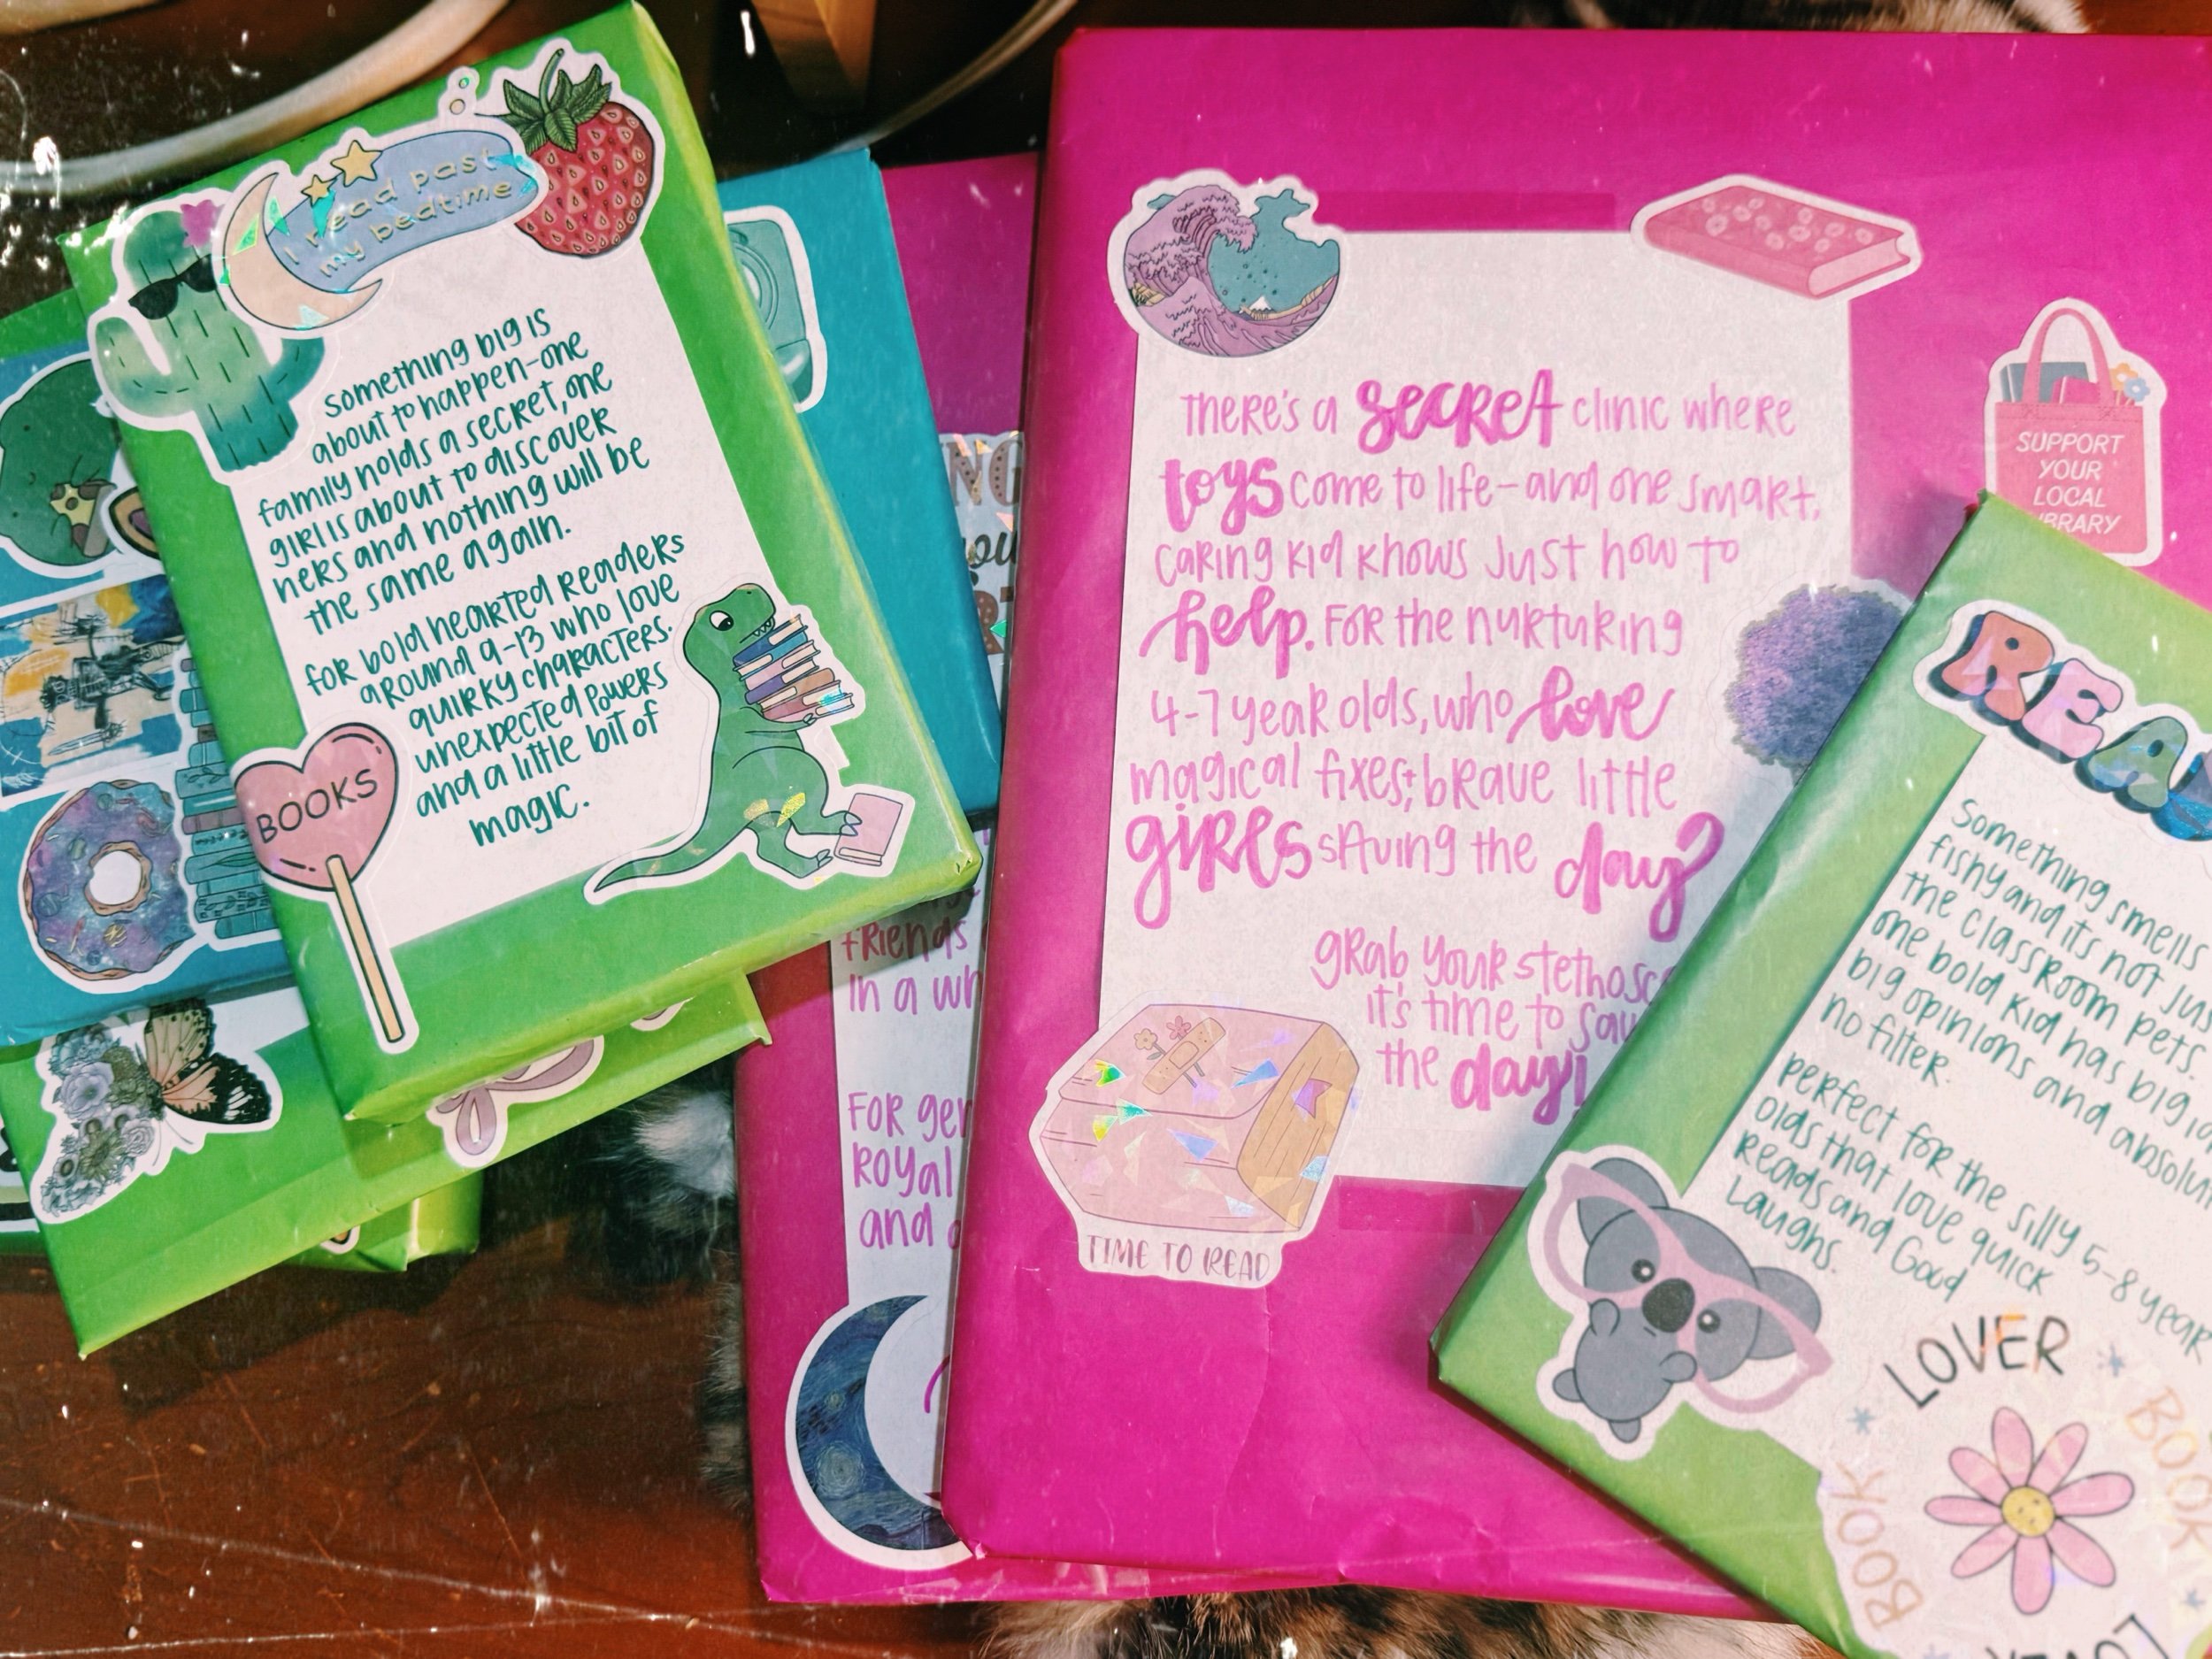 I read past
my bedtime
something big is
about to happen-one
family holds a secret, one
girl is about to discover
hers and nothing will be
the same again.
for bold hearted readers
around 9-13 who love
quirky characters.
unexpected powers
and a little bit of
magic.
BOOKS
friends
in a wh
For gen
Royal
and
There's a secret clinic where
toys come to life-and one smart,
caring kid knows just how to
help. For the nurturing
4-7 year olds, who love
magical fixes + brave little
girls saving the day?
grab your stethosc
it's time to sav
the day!
TIME TO READ
SUPPORT
YOUR
LOCAL
LIBRARY
REA
Something smells
fishy and its not jus
the classroom pets.
one bold kid has big id
big opinions and absolu
no filter.
perfect for the silly 5-8 year
olds that love quick
reads and Good
Laughs.
LOVER
BOOK
BOOK
LOVER